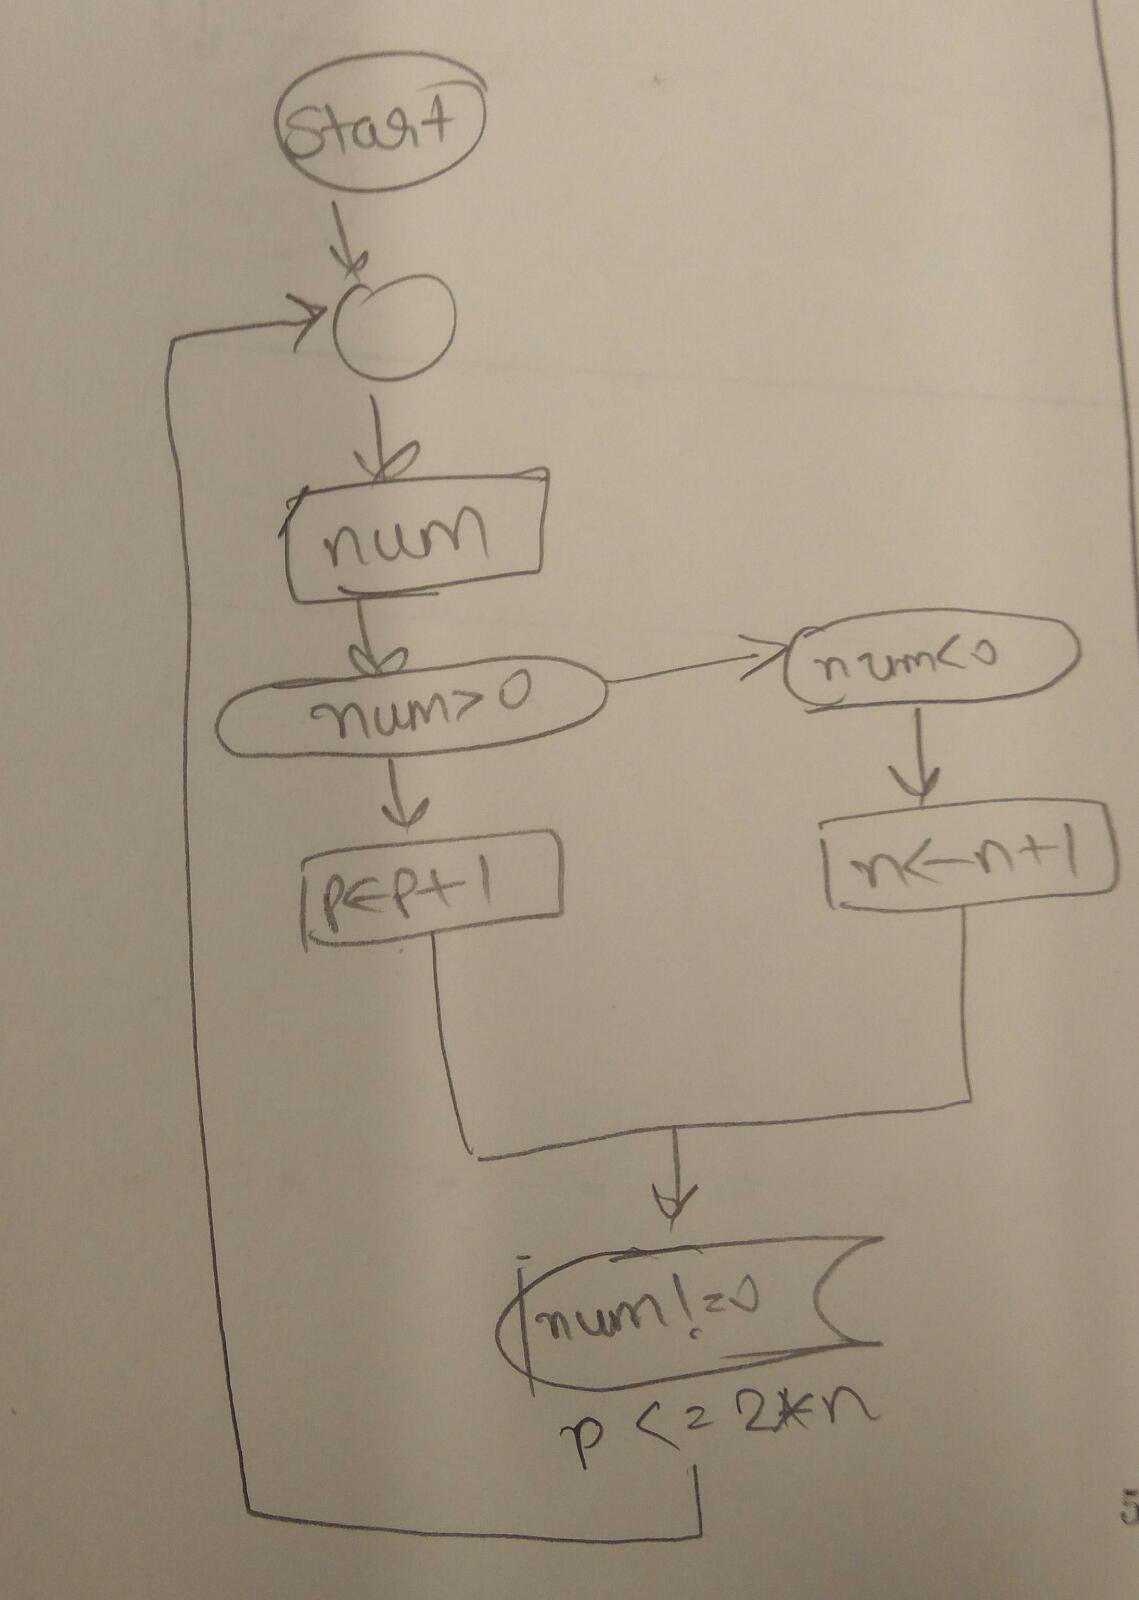 Start
num
num>0
num<0
p<-p+1
n<-n+1
num!=0
p<=2*n